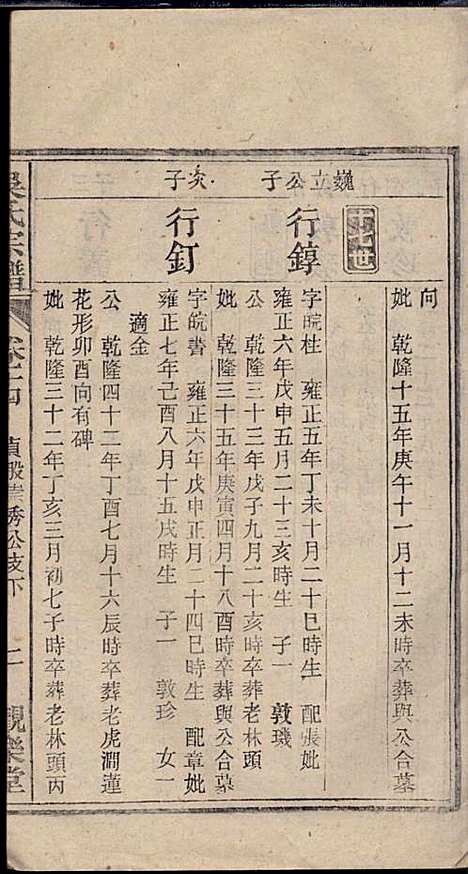 向
妣 乾隆十五年庚午十一月十二未時卒葬與公合墓
十七世
巍立公子
行錞
字皖柱 雍正五年丁未十月二十巳時生 配張妣
雍正六年戊申五月二十三亥時生 子一 敦璣
公 乾隆三十三年戊子九月二十亥時卒葬老林頭
妣 乾隆三十五年庚寅四月十八酉時卒葬與公合墓
次子
行釘
字皖書 雍正六年戊申正月二十四巳時生 配章妣
雍正七年己酉八月十五戌時生 子一 敦珍 女一
適金
公 乾隆四十二年丁酉七月十六辰時卒葬老虎澗蓮
花形卯酉向有碑
妣 乾隆三十二年丁亥三月初七子時卒葬老林頭丙
吳氏宗譜 卷十四 貞股 秀公支下 二 親樂堂